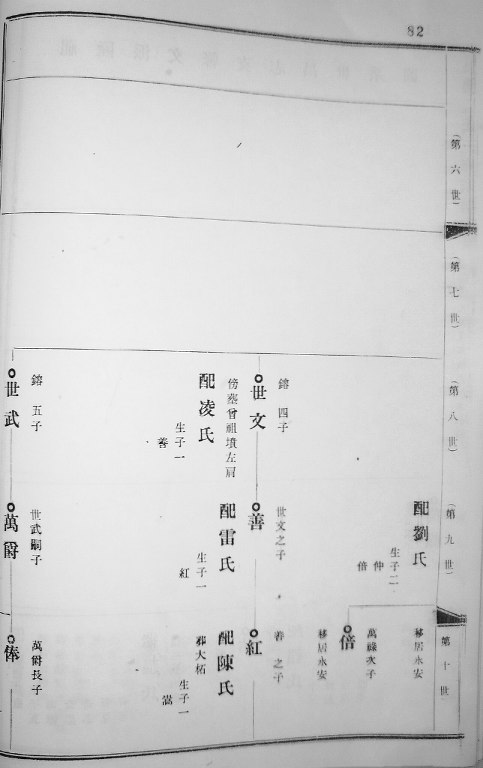 82
（第六世）
（第七世）
（第八世）
（第九世）
第十世
世文
鎔四子
傍塟曾祖墳左肩
配凌氏
生子一
善
世武
鎔五子
配劉氏
生子二
仲
倍
善
世文之子
配雷氏
生子一
紅
萬爵
世武嗣子
移居永安
倍
萬祿次子
移居永安
紅
善之子
配陳氏
葬大柘
生子一
嵩
俸
萬爵長子